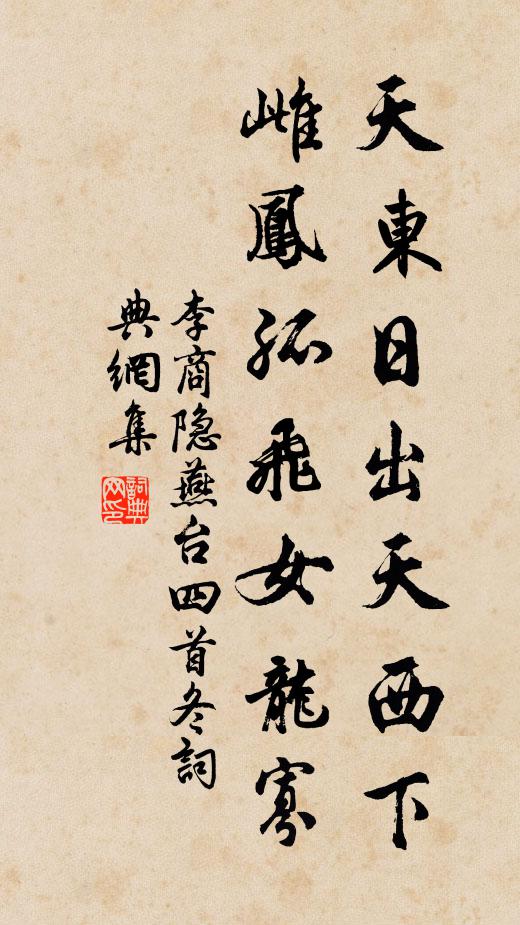 天東日出天西下
雌鳳孤飛女龍寡
李商隐燕台四首冬詞
典網集
詞典网印